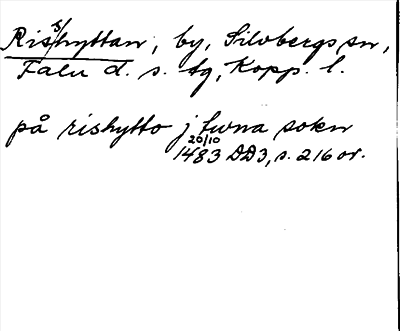 Ris/s/hyttan, by, Silvbergs sn,
Falu d. s. tg, Kopp. l.
på rishytto j twna sokn
20/10
1483 DD3, s. 216 or.